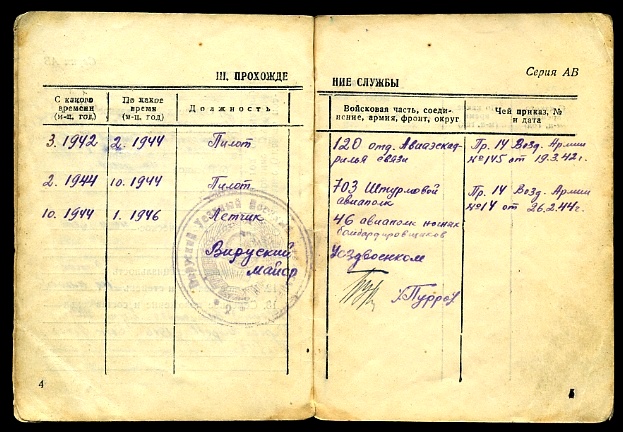 III. ПРОХОЖДЕ
НИЕ СЛУЖБЫ
Серия АВ
С какого времени (м-ц, год)
По какое время (м-ц, год)
Должность
Войсковая часть, соеди-
нение, армия, фронт, округ
Чей приказ, №
и дата
3. 1942 2. 1944 Пилот 120 отд. Авиаэскад-
рилья связи
Пр. 14 Возд. Армии
№ 145 от 19.3.42 г.
2. 1944 10. 1944 Пилот. 703 Штурмовой
авиаполк
Пр. 14 Возд. Армии
№ 14 от 26.2.44 г.
10. 1944 1. 1946 Летчик 46 авиаполк ночных
бомбардировщиков
Вируский Уездвоенком
майор
4
5